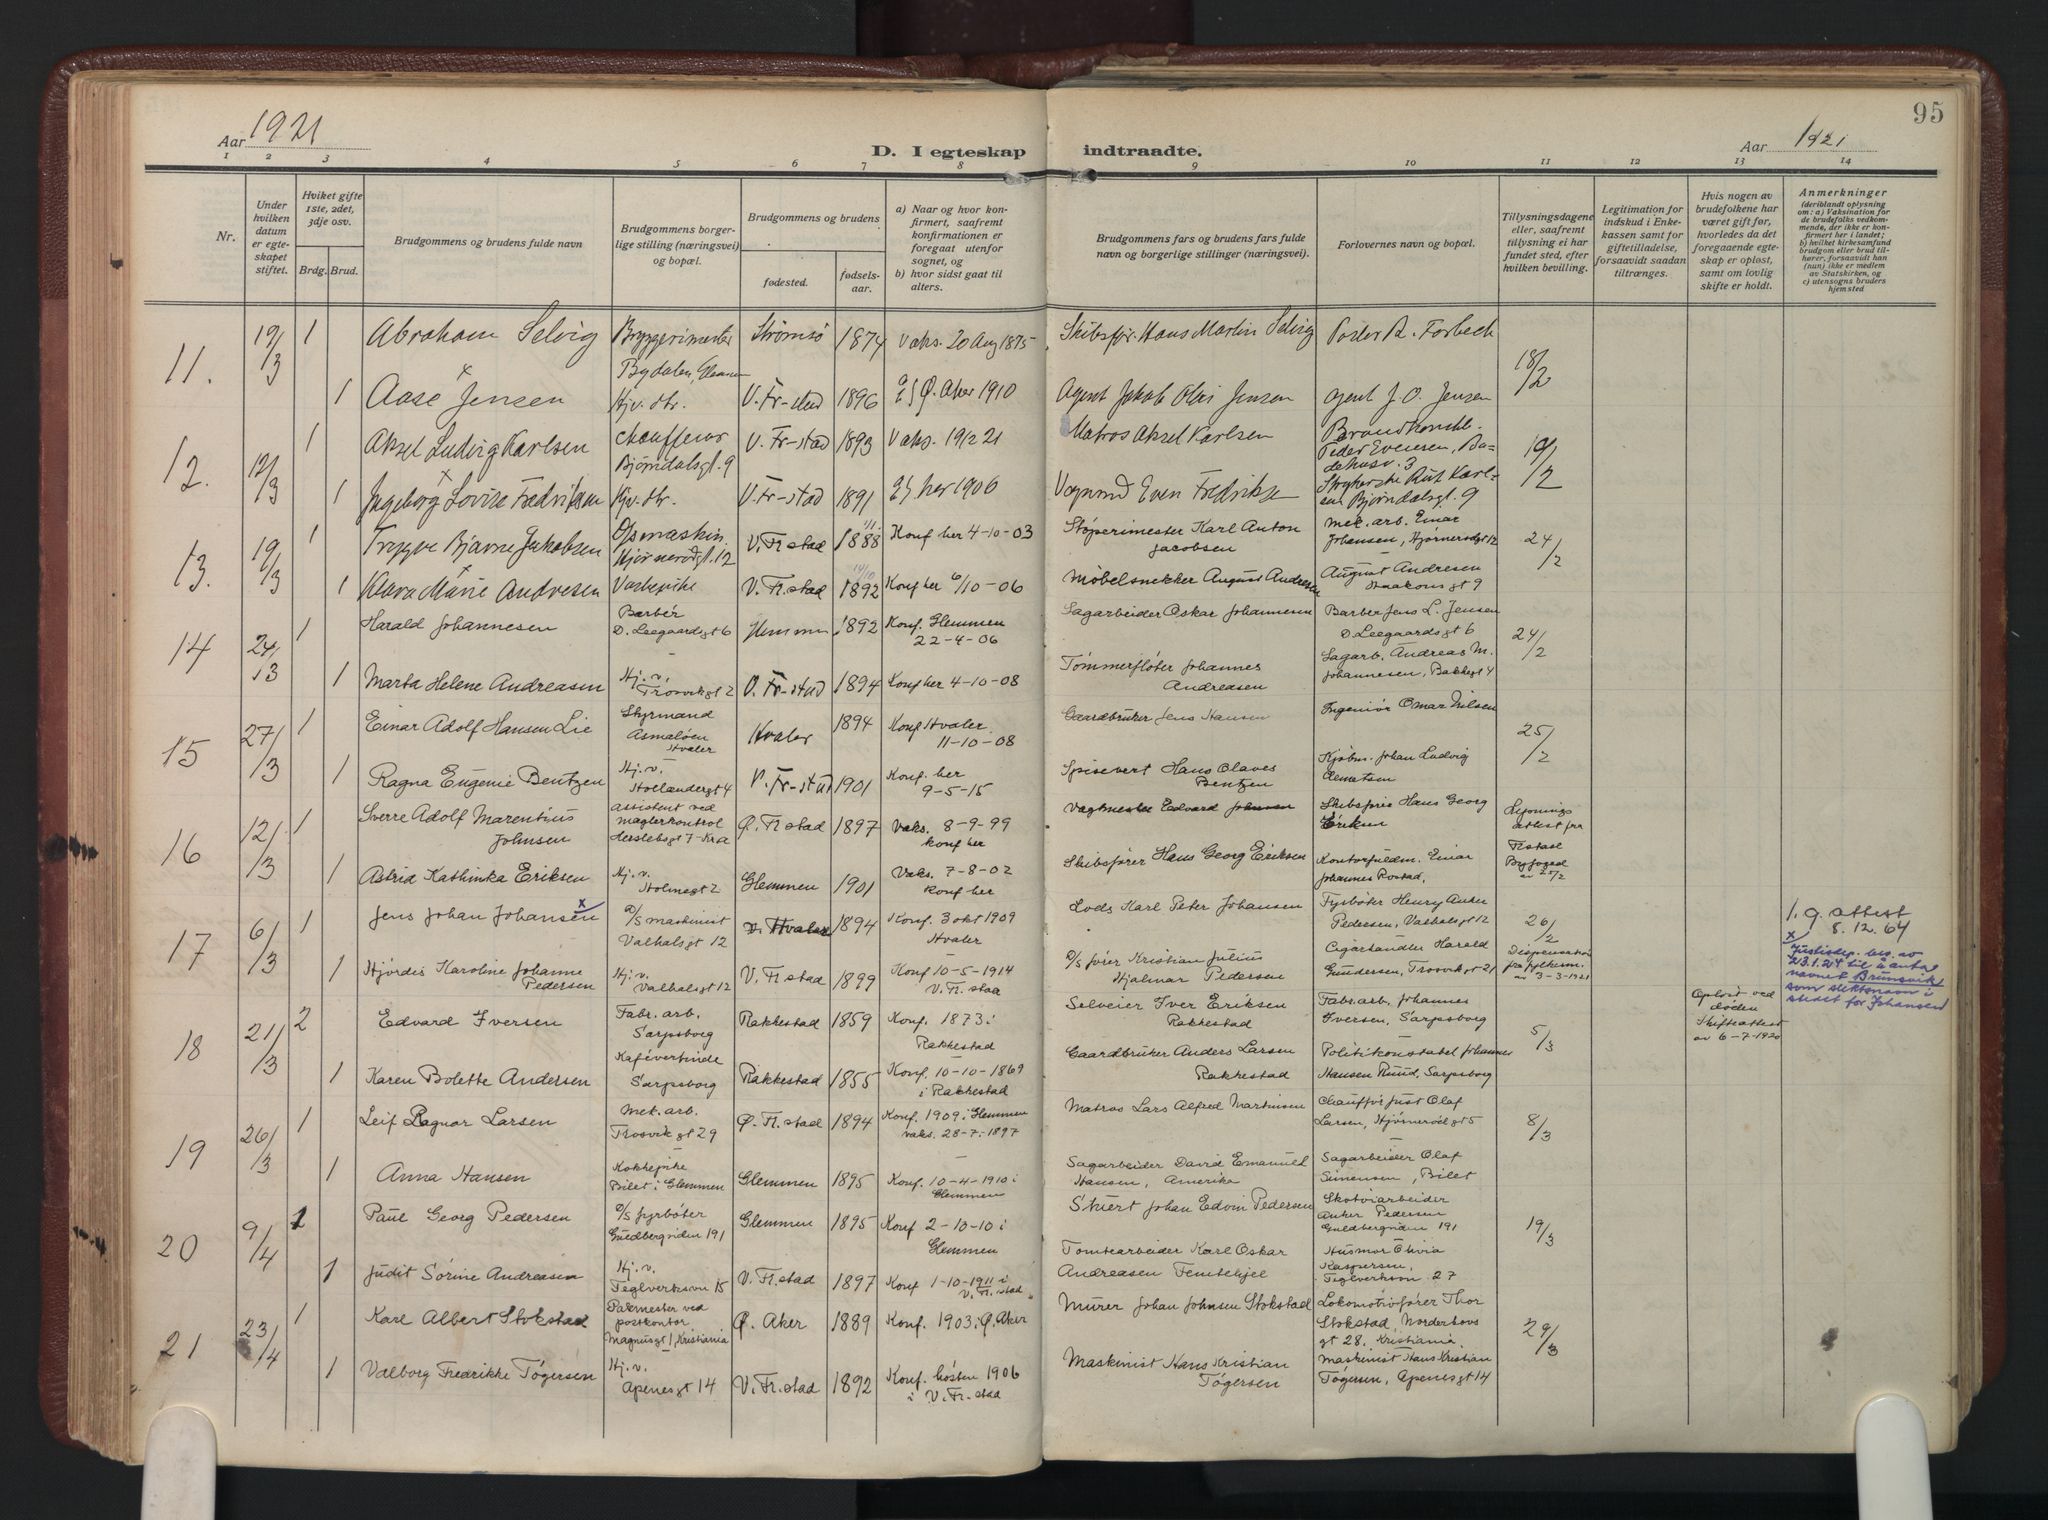 95
Aar 1921
D. I egteskap indtraadte.
Aar 1921
1 2 3 4 5 6 7 8 9 10 11 12 13 14
Nr.
Under hvilken datum er egteskapet stiftet.
Hviket gifte 1ste, 2det, 3dje osv.
Brdg. Brud.
Brudgommens og brudens fulde navn
Brudgommens borgerlige stilling (næringsvei) og bopæl.
Brudgommens og brudens
fødested.
fødselsaar.
a) Naar og hvor konfirmert, saafremt konfirmationen er foregaat utenfor sognet, og
b) hvor sidst gaat til alters.
Brudgommens fars og brudens fars fulde navn og borgerlige stillinger (næringsvei).
Forlovernes navn og bopæl.
Tillysningsdagene eller, saafremt tillysning ei har fundet sted, efter hvilken bevilling.
Legitimation for indskud i Enkekassen samt for giftetilladelse, forsaavidt saadan tiltrænges.
Hvis nogen av brudefolkene har været gift før, hvorledes da det foregaaende egteskap er opløst, samt om lovlig skifte er holdt.
Anmerkninger
(deriblandt oplysning om: a) Vaksination for de brudefolks vedkommende, der ikke er konfirmert her i landet; b) hvilket kirkesamfund brudgom eller brud tilhører, forsaavidt han (hun) ikke er medlem av Statskirken, og c) utensogns bruders hjemsted
11. 19/3 1 Abraham Selvig Bryggerimester Bydalen, Strømsø 1874 Vaks. 20 Aug 1875 Skibsfør. Hans Martin Selvig A. Forbech 18/2
1 Aase Jensen Hj. v. dtr. V. Fr-stad 1896 Ø. Aker 1910 Agent Jakob Olai Jensen Agent J. O. Jensen
12. 12/3 1 Aksel Ludvig Karlsen Chauffeur Bjørndalsgt. 9 V. Fr-stad 1893 Vaks. Matros Aksel Karlsen Peder Evensen, Badehusv. 3 19/2
1 Ingeborg Lovise Fredriksen Hjv. dtr. V. Fr-stad 1891 her 1906 Even Fredriksen Rut Karlsen Bjørndalsgt. 9
13. 19/3 1 Trygve Bjarne Jakobsen Hjørnerødgt. 12 V. Fr stad 1888 Konf her 4-10-03 Støperimester Karl Anton Jacobsen Mek. arb. Einar Johansen, Hjørnerødgt 12 24/2
1 Klara Marie Andresen V. Fr. stad 14/10 1892 Konf her 6/10-06 Møbelsnekker August Andresen August Andresen Haakonsgt 9
14 24/3 1 Harald Johannesen Barbér D. Leegaardsgt 6 1892 Konf. Glemmen 22-4-06 Sagarbeider Oskar Johannesen Barber Jens L. Jensen D. Leegaardsgt 6 24/2
1 Marta Helene Andreasen Hj. v. Trosvikgt 2 V. Fr-stad 1894 Konf her 4-10-08 Tømmerfløter Johannes Andreasen Sagarb. Andreas M. Johannesen, Bakkegt 4
15 27/3 1 Einar Adolf Hansen Lie Styrmand Asmaløen Hvaler Hvaler 1894 Konf Hvaler 11-10-08 Gaardbruker Jens Hansen Ingeniør Omar Nilsen 25/2
1 Ragna Eugenie Bentzen Hj. v. Hollændergt 4 V. Fr-stad 1901 Konf. her 9-5-15 Spisevert Hans Olaves Bentzen Kjøbm. Johan Ludvig Clemetsen
16 12/3 1 Sverre Adolf Marentius Johnsen Assistent ved maglerkontrol Herslebsgt 7 - Kra Ø. Fr. stad 1897 Vaks. 8-9-99 konf her Vagtmester Edvard Johnsen Skibsfører Hans Georg Eriksen Lysningsattest fra Fr.stad Byfoged av 25/2
1 Astrid Kathinka Eriksen Hj. v. Holmegt 2 Glemmen 1901 Vaks. 7-8-02 Konf her Skibsfører Hans Georg Eriksen Kontorfuldm. Einar Johannes Rostad,
17 6/3 1 Jens Johan Johansen x D/S maskinist Valhalsgt 12 Hvaler 1894 Konf. 3 okt 1909 Hvaler Lods Karl Peter Johansen Fyrbøter Henry Anker Pedersen, Valhalsgt 12 26/2
1. g. attest 8.12.64
x Justisdep. bev. av 23.1.24 til å anta navnet Brunsvik som slektsnavn i stedet for Johansen
1 Hjørdis Karoline Johanne Pedersen Hj. v. Valhalsgt 12 V. Fr. stad 1899 Konf 10-5-1914 V. Fr. staa D/S fører Kristian Julius Hjalmar Pedersen Cigarhandler Harald Gundersen, Trosvikgt 21 Dispensation fra fylkesm. av 3-3-1921
18 21/3 2 Edvard Iversen Fabr. arb. Sarpsborg Rakkestad 1859 Konf. 1873 i Rakkestad Selveier Iver Eriksen Rakkestad Fabr. arb. Johannes Iversen, Sarpsborg 5/3 Opløst ved døden Skifteattest av 6-7-1920
1 Karen Bolette Andersen Kafévertinde Sarpsborg Rakkestad 1855 Konf. 10-10-1869 i Rakkestad Gaardbruker Anders Larsen Rakkestad Politikonstabel Johannes Hansen Ruud, Sarpsborg
19 26/3 1 Leif Ragnar Larsen Mek. arb. Trosvikgt 29 Ø. Fr. stad 1894 Konf. 1909 i Glemmen vaks. 28-7-1897 Matros Lars Alfred Martinsen Chauffør Just Olaf Larsen, Hjørnerødgt 5 8/3
1 Anna Hansen Kokkepike Bilet i Glemmen Glemmen 1895 Konf. 10-4-1910 i Glemmen Sagarbeider David Emanuel Hansen, Amerika Sagarbeider Olaf Simensen, Bilet
20 9/4 1 Paul Georg Pedersen D/S fyrbøter Guldbergsiden 191 Glemmen 1895 Konf 2-10-10 i Glemmen Stuert Johan Edvin Pedersen Skotøiarbeider Anker Pedersen Guldbergsiden 191 19/3
1 Judit Sørine Andreasen Hj. v. Teglverksvn 15 V. Fr. stad 1897 Konf 1-10-1911 i V. Fr. stad Tomtearbeider Karl Oskar Andreasen Femtehjel Husmor Olivia Kaspersen, Teglverksvn 27
21 23/4 1 Karl Albert Stokstad Pakmester ved postkontor Magnusgt 1, Kristiania Ø. Aker 1889 Konf. 1903 i Ø. Aker Murer Johan Johnsen Stokstad Lokomotivfører Thor Stokstad, Norderhovsgt 28, Kristiania 29/3
1 Valborg Fredrikke Tøgersen Hj. v. Apenesgt 14 V. Fr. stad 1892 Konf. høsten 1906 i V. Fr. stad Maskinist Hans Kristian Tøgersen Maskinist Hans Kristian Tøgersen, Apenesgt 14